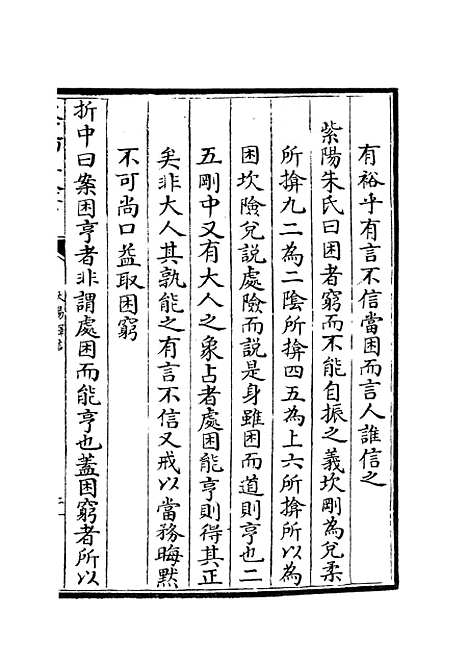 有裕乎有言不信當困而言人誰信之
紫陽朱氏曰困者窮而不能自振之義坎剛為兌柔
所揜九二為二陰所揜四五為上六所揜所以為
困坎險兌說處險而說是身雖困而道則亨也二
五剛中又有大人之象占者處困能亨則得其正
矣非大人其孰能之有言不信又戒以當務晦默
不可尚口益取困窮
折中曰案困亨者非謂處困而能亨也蓋困窮者所以